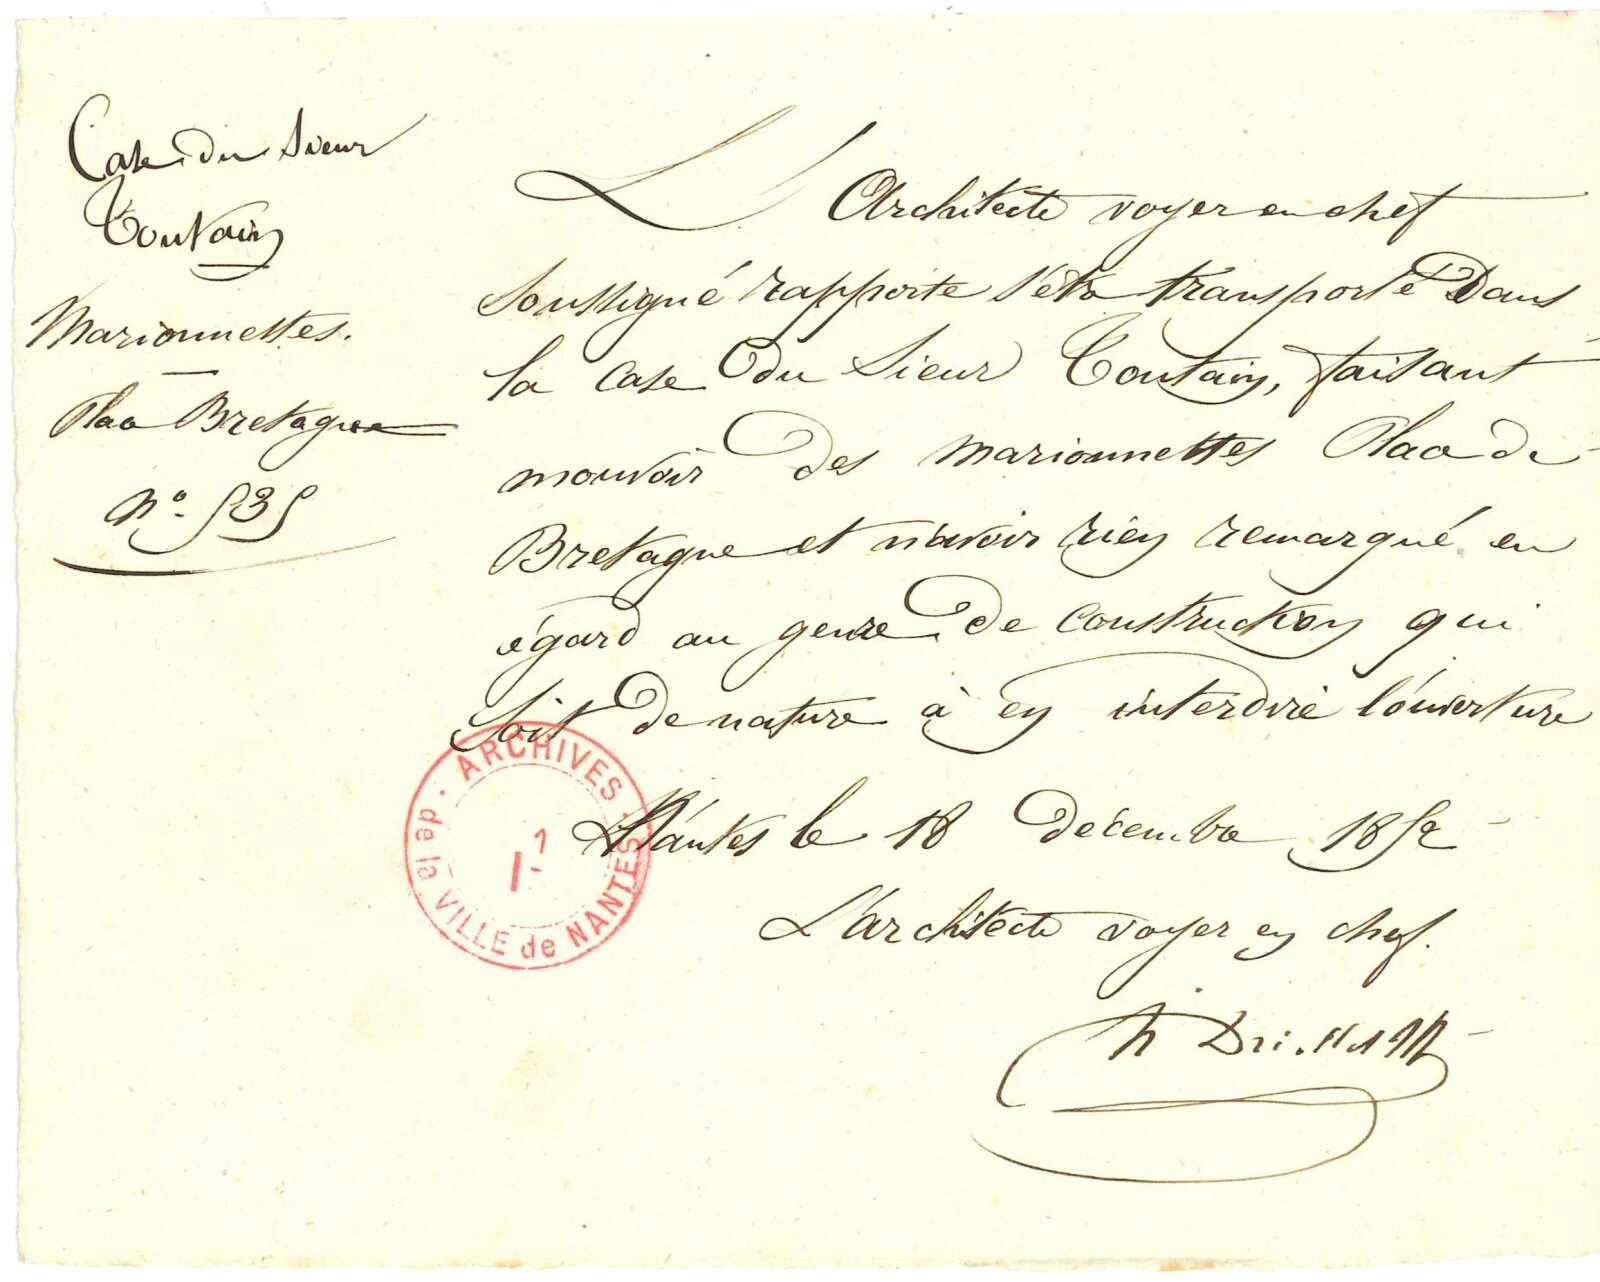 Case du Sieur
Toutain
Marionnettes.
Place Bretagne
N° 535
L'Architecte voyer en chef
soussigné rapporte s'être transporté Dans
la case du Sieur Toutain, faisant
mouvoir des marionnettes Place de
Bretagne et n'avoir rien remarqué en
égard au genre de construction qui
soit de nature à en interdire l'ouverture
Nantes le 18 décembre 1852
L'architecte voyer en chef.
ARCHIVES
de la VILLE de NANTES
1
I-